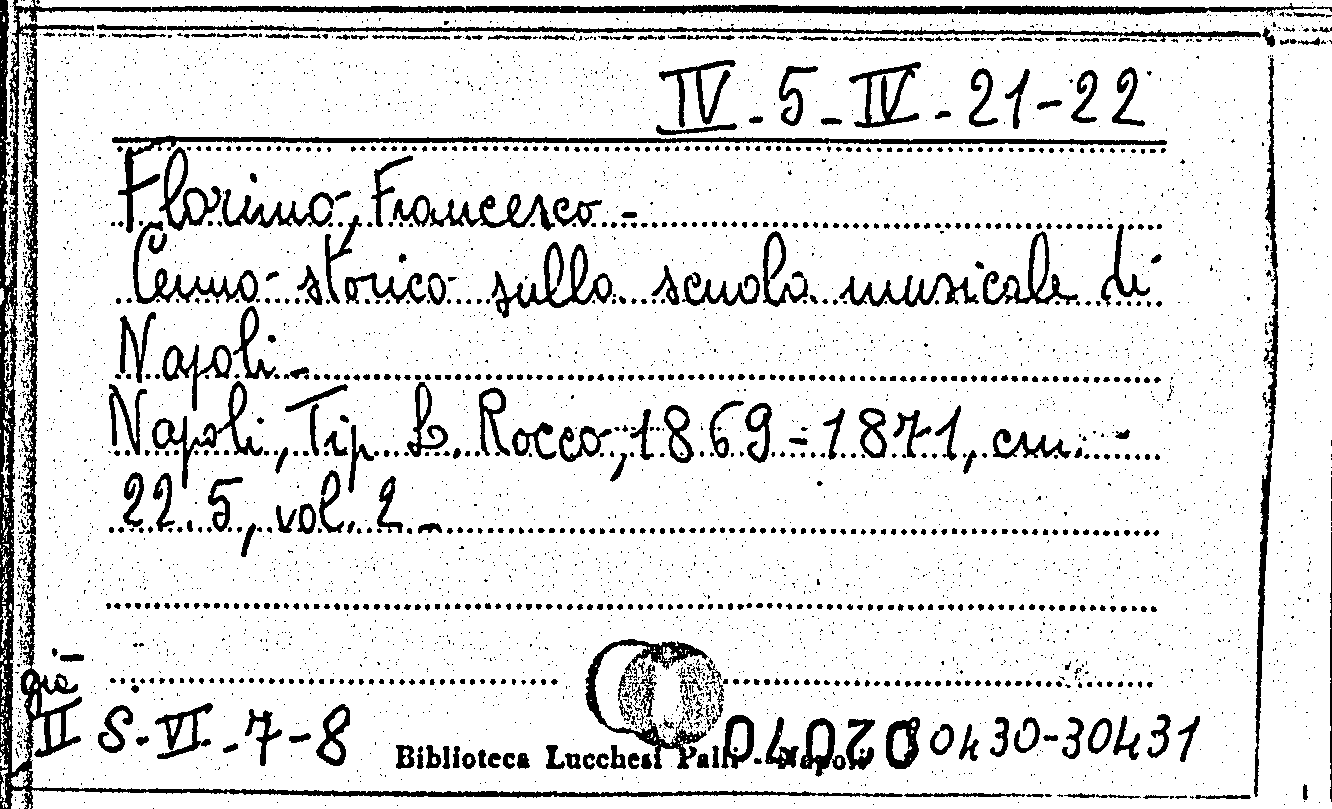 IV - 5 - IV - 21-22
Florimo, Francesco -
Cenno storico sulla scuola musicale di
Napoli -
Napoli, Tip. L. Rocco, 1869-1871, cm. -
22.5, vol. 2 -
già
II S. VI. - 7-8
Biblioteca Lucchesi Palli - Napoli
30430-30431